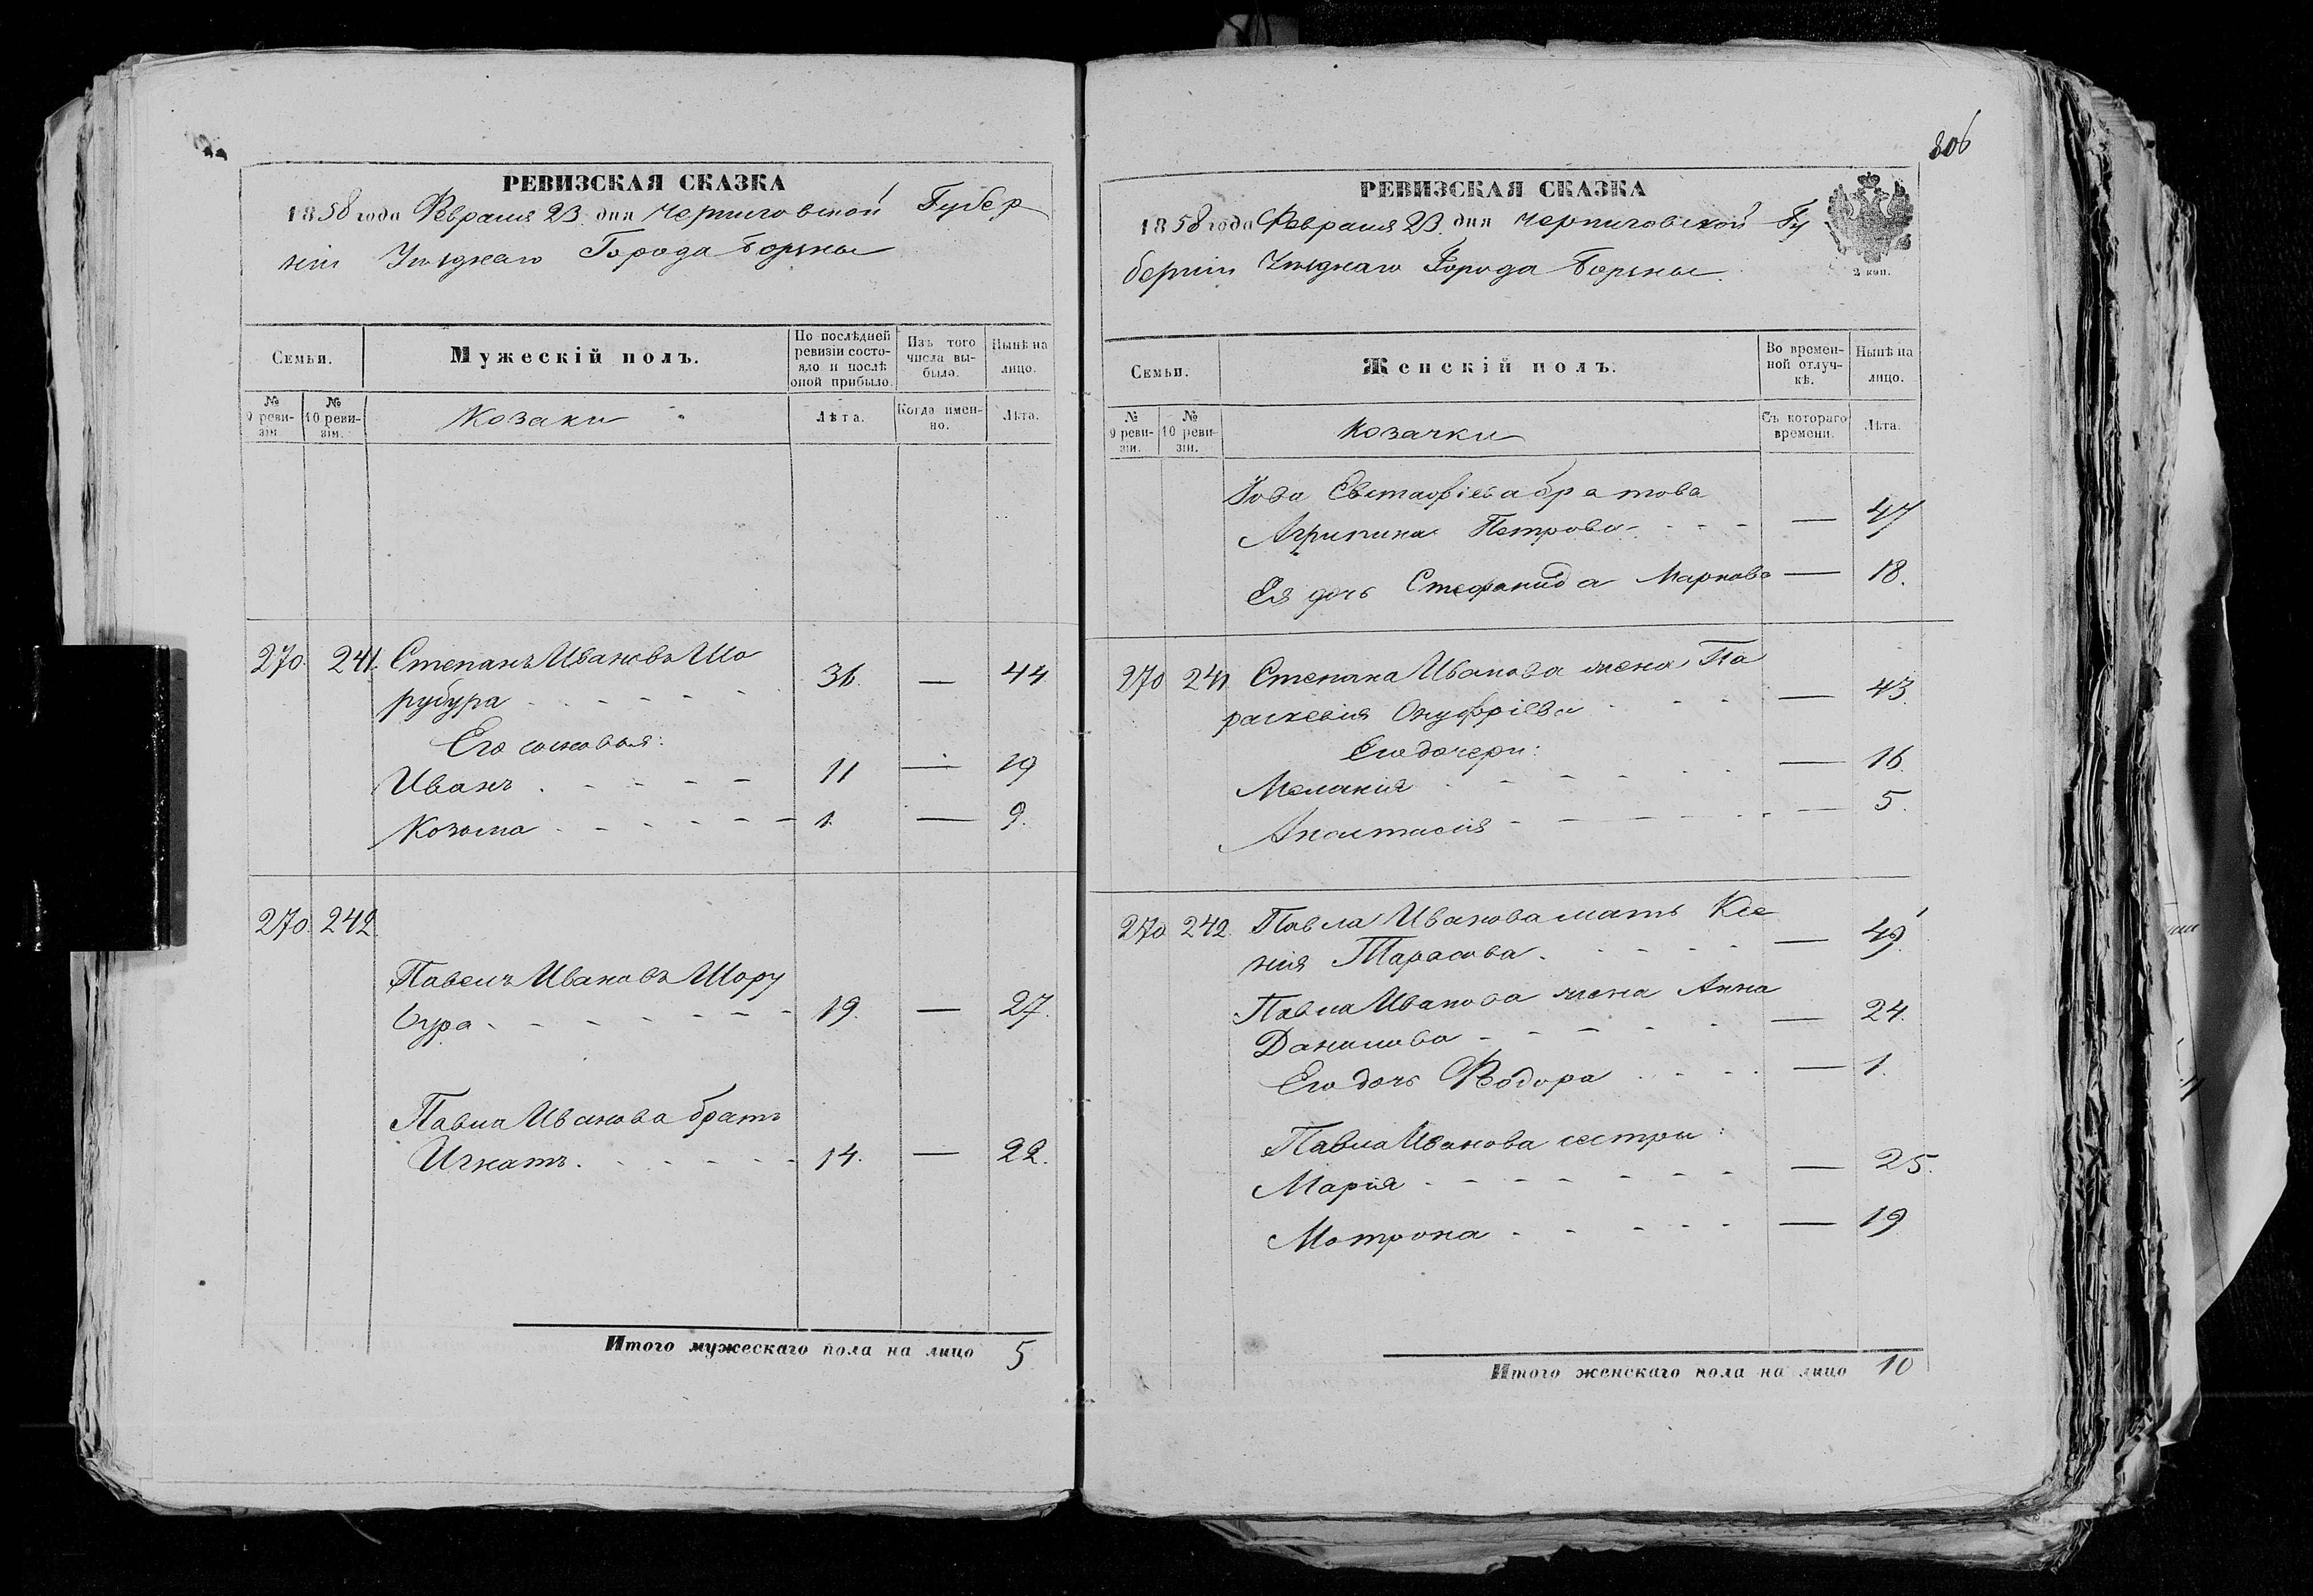 РЕВИЗСКАЯ СКАЗКА
1858 года Февраля 23. дня Черниговской Губер
ніи Уѣзднаго Города Борзны
Семьи.
Мужескій полъ.
По послѣдней
ревизіи состо-
яло и послѣ
оной прибыло.
Изъ того
числа вы-
было.
Нынѣ на
лицо.
№
9 реви-
зіи.
№
10 реви-
зіи.
Козаки
Лѣта.
Когда имен-
но.
Лѣта.
270. 241. Степанъ Ивановъ Шо
рубура 36. — 44
Его сыновья:
Иванъ 11 — 19
Козьма 1. — 9.
270. 242.
Павелъ Ивановъ Шору
бура 19. — 27.
Павла Иванова братъ
Игнатъ 14. — 22.
Итого мужескаго пола на лицо 5
306
РЕВИЗСКАЯ СКАЗКА
1858 года Февраля 23. дня Черниговской Гу
берніи Уѣзднаго Города Борзны.
2 коп.
Семьи.
Женскій полъ.
Во времен-
ной отлуч-
кѣ.
Нынѣ на
лицо.
№
9 реви-
зіи.
№
10 реви-
зіи.
Козачки
Съ котораго
времени.
Лѣта.
Іова Евстафіева братова
Агрипина Петрова — 47
Ея дочь Стефанида Маркова — 18.
270 241 Степана Иванова жена Па
раскевія Онуфріева — 43.
Его дочери:
Меланія — 16.
Анастасія — 5.
270 242. Павла Иванова мать Ксе
нія Тарасова. — 49.
Павла Иванова жена Анна
Данилова — 24.
Его дочь Ѳедора — 1.
Павла Иванова сестры:
Марія — 25.
Мотрона — 19
Итого женскаго пола на лицо 10